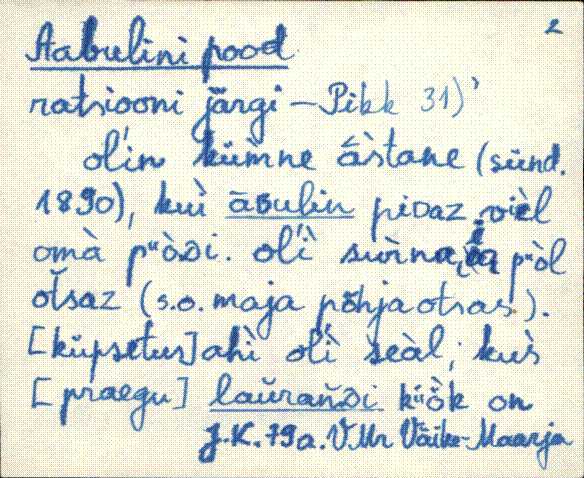 2
Aabulini pood
ratsiooni järgi – Pikk 31)
olin kümne ästane (sünd.
1890), kuì āʙulin piᴅaz vièl
omà pᵘòᴅi. olì sùrna, pòl
otsaz (s.o. maja põhjaotsas).
[küpsetus]ahì olì seàl, kus
[praegu] lauranᴅi kᵘòk on
J.K. 79a. VMr Väike-Maarja